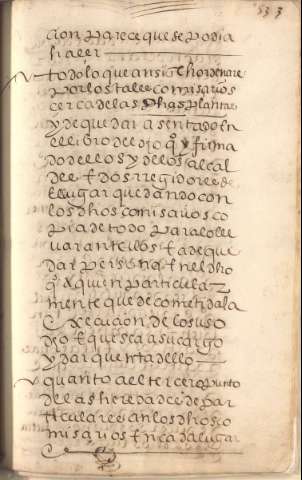 53 3
çion pareçe que se podia
haçer
todo lo que ansi se hordenare
por los tales comisarios
cerca de las dhas plantas
y de quedar asentado en
el libro de el dio q° y firma
do de ellos y de los alcal
des E dos rregidores de
el lugar quedando con
los dhos comisarios co
pia de todo para lo lle
uar ante los E a de que
dar persona En el dho
q° a quien particular
mente quede cometida la
Execuçion de lo suso
dho E quesea a su cargo
y dar quenta dello
quanto a el terçero punto
de las heredades de par
ticulares an los dhos co
misarios En cada lugar